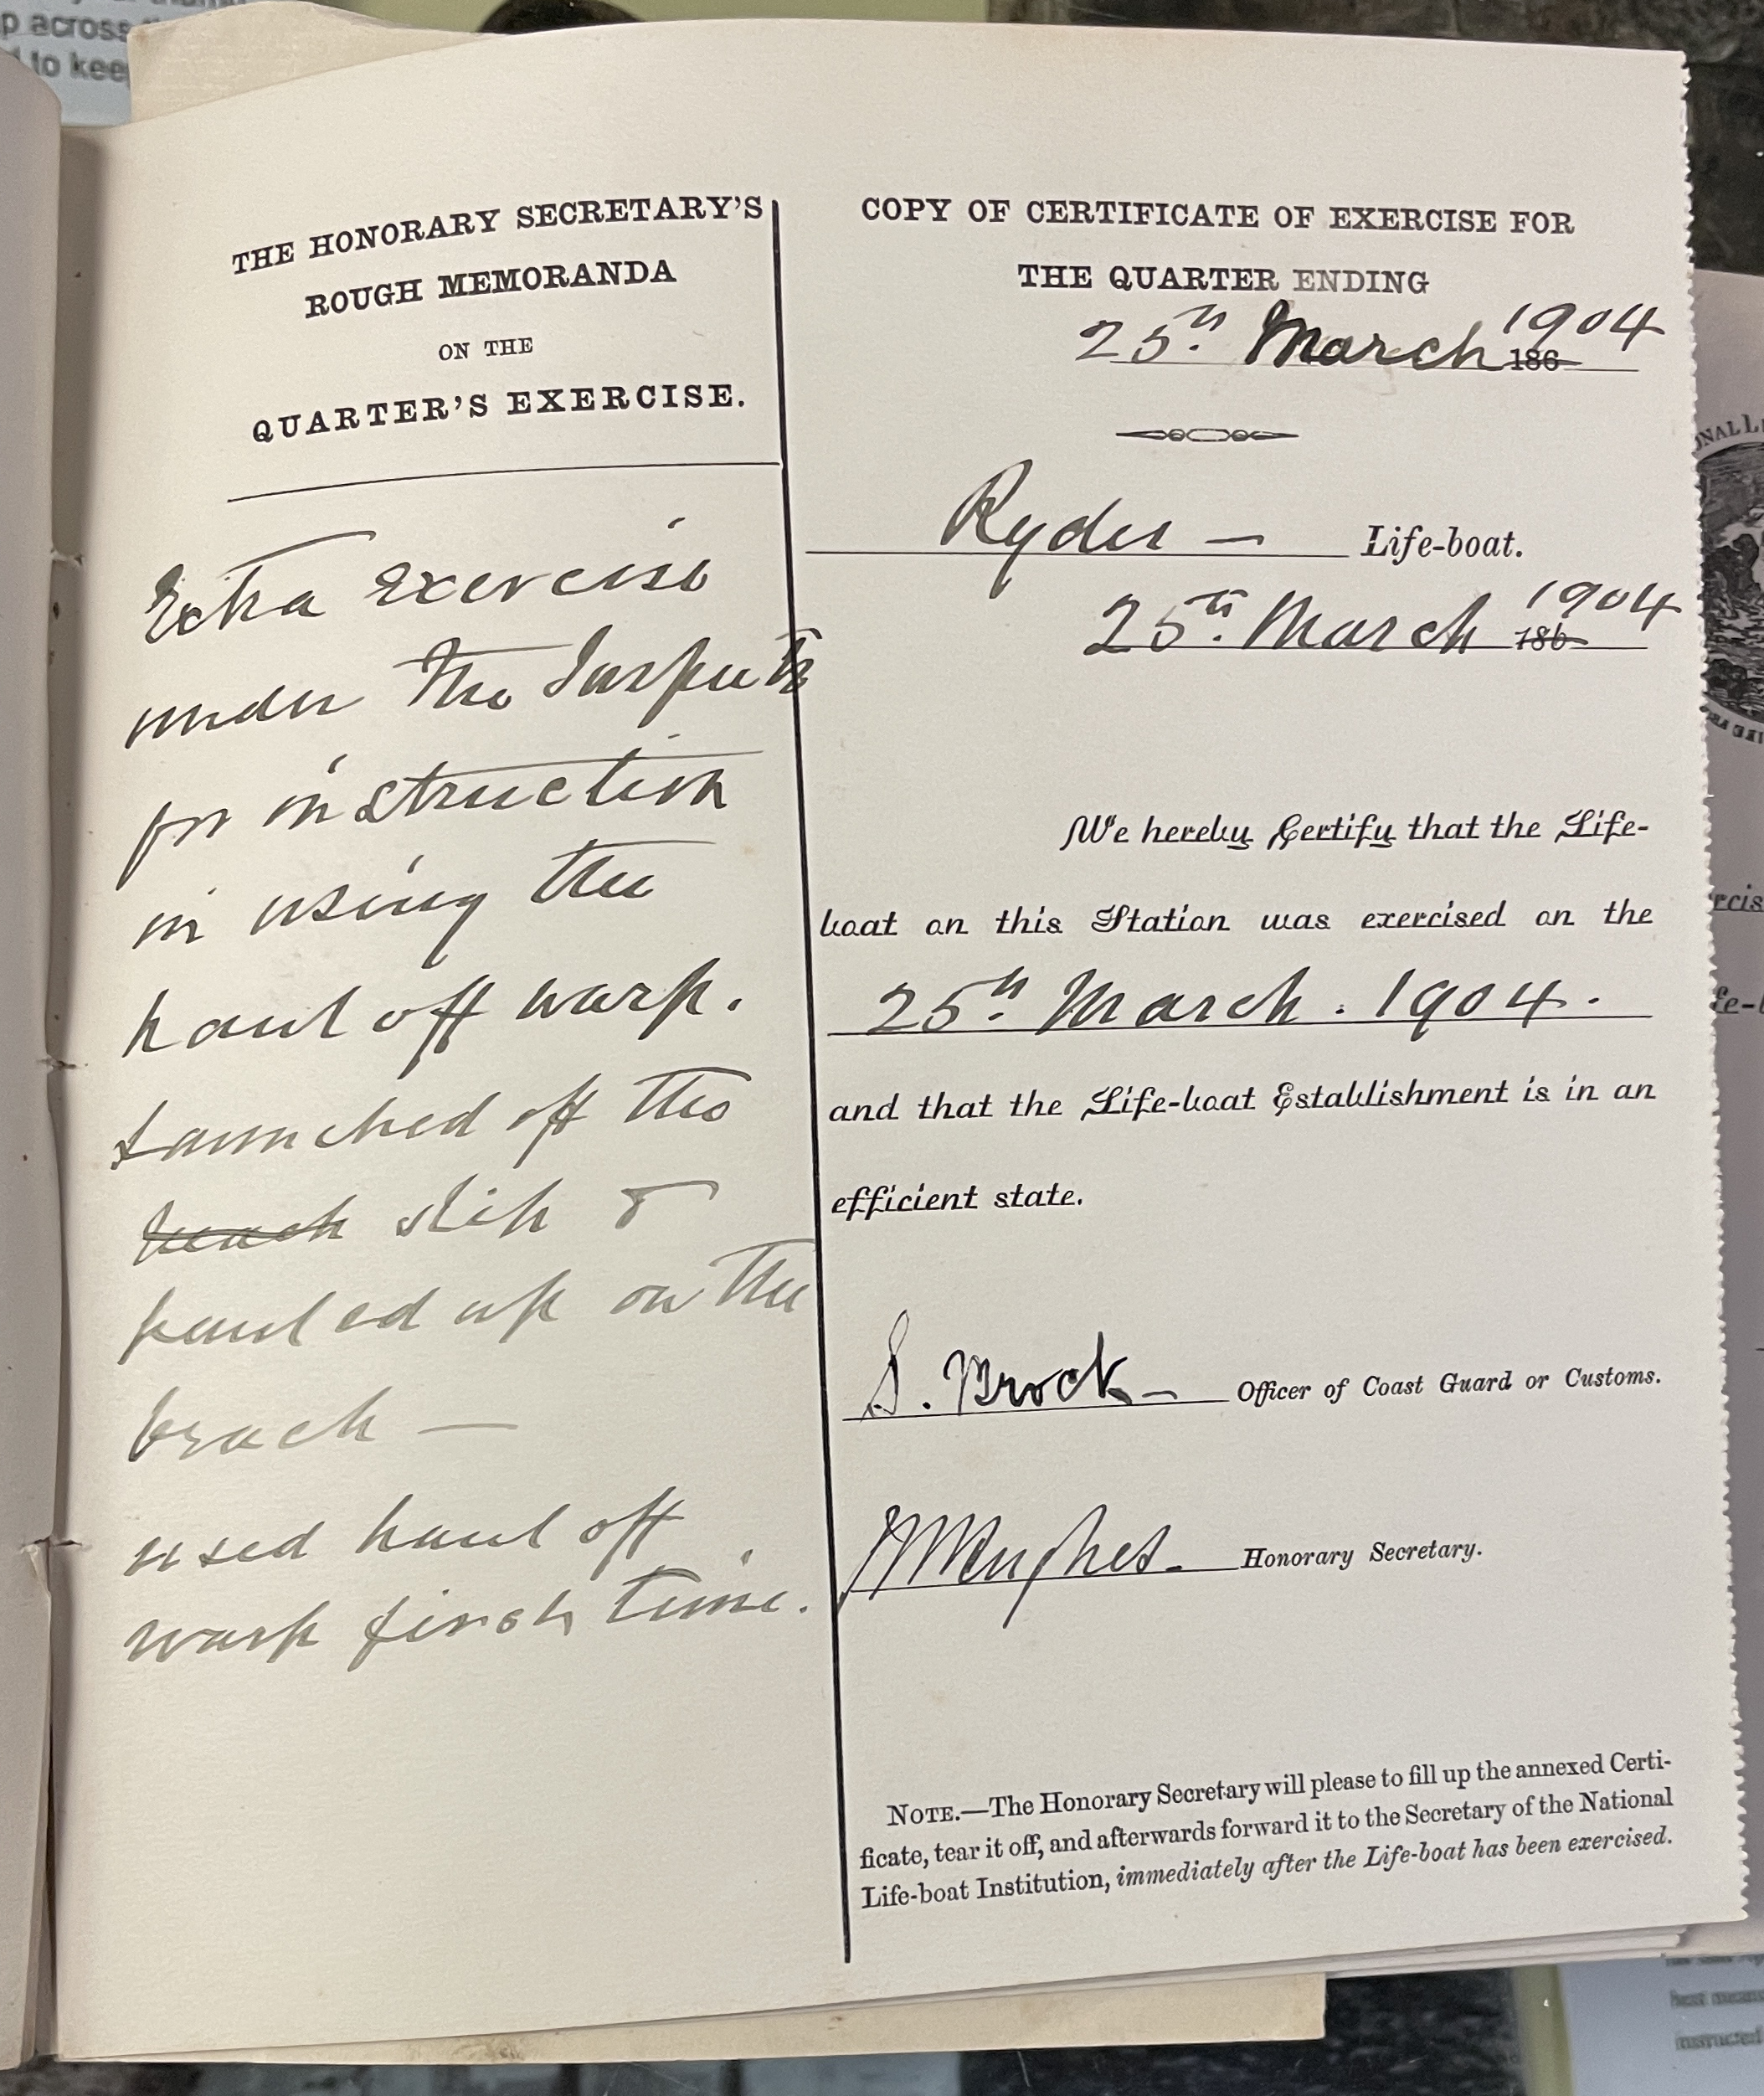 p across
to kee
THE HONORARY SECRETARY'S
ROUGH MEMORANDA
ON THE
QUARTER'S EXERCISE.
Extra Exercise
under the Inspector
for instruction
in using the
haul off warp.
Launched off the
beach slip &
hauled up on the
beach —
used haul off
warp first time.
COPY OF CERTIFICATE OF EXERCISE FOR
THE QUARTER ENDING
25th March 186 1904
Ryder — Life-boat.
25th March 186 1904
We hereby Certify that the Life-
boat on this Station was exercised on the
25th March. 1904.
and that the Life-boat Establishment is in an
efficient state.
S. Brock — Officer of Coast Guard or Customs.
Hughes. Honorary Secretary.
NOTE.—The Honorary Secretary will please to fill up the annexed Certi-
ficate, tear it off, and afterwards forward it to the Secretary of the National
Life-boat Institution, immediately after the Life-boat has been exercised.